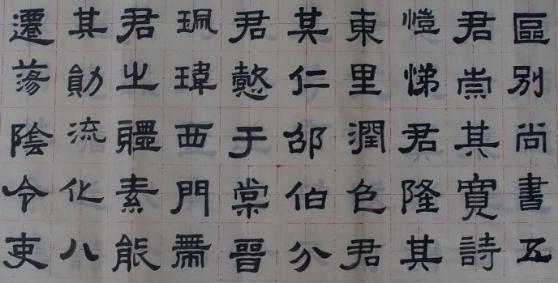 區別尚書五
君崇其寬詩
愷悌君隆其
東里潤色君
其仁邵伯分
君懿于棠晉
珮瑋西門帶
君之體素能
其勛流化八
遷蕩陰令吏